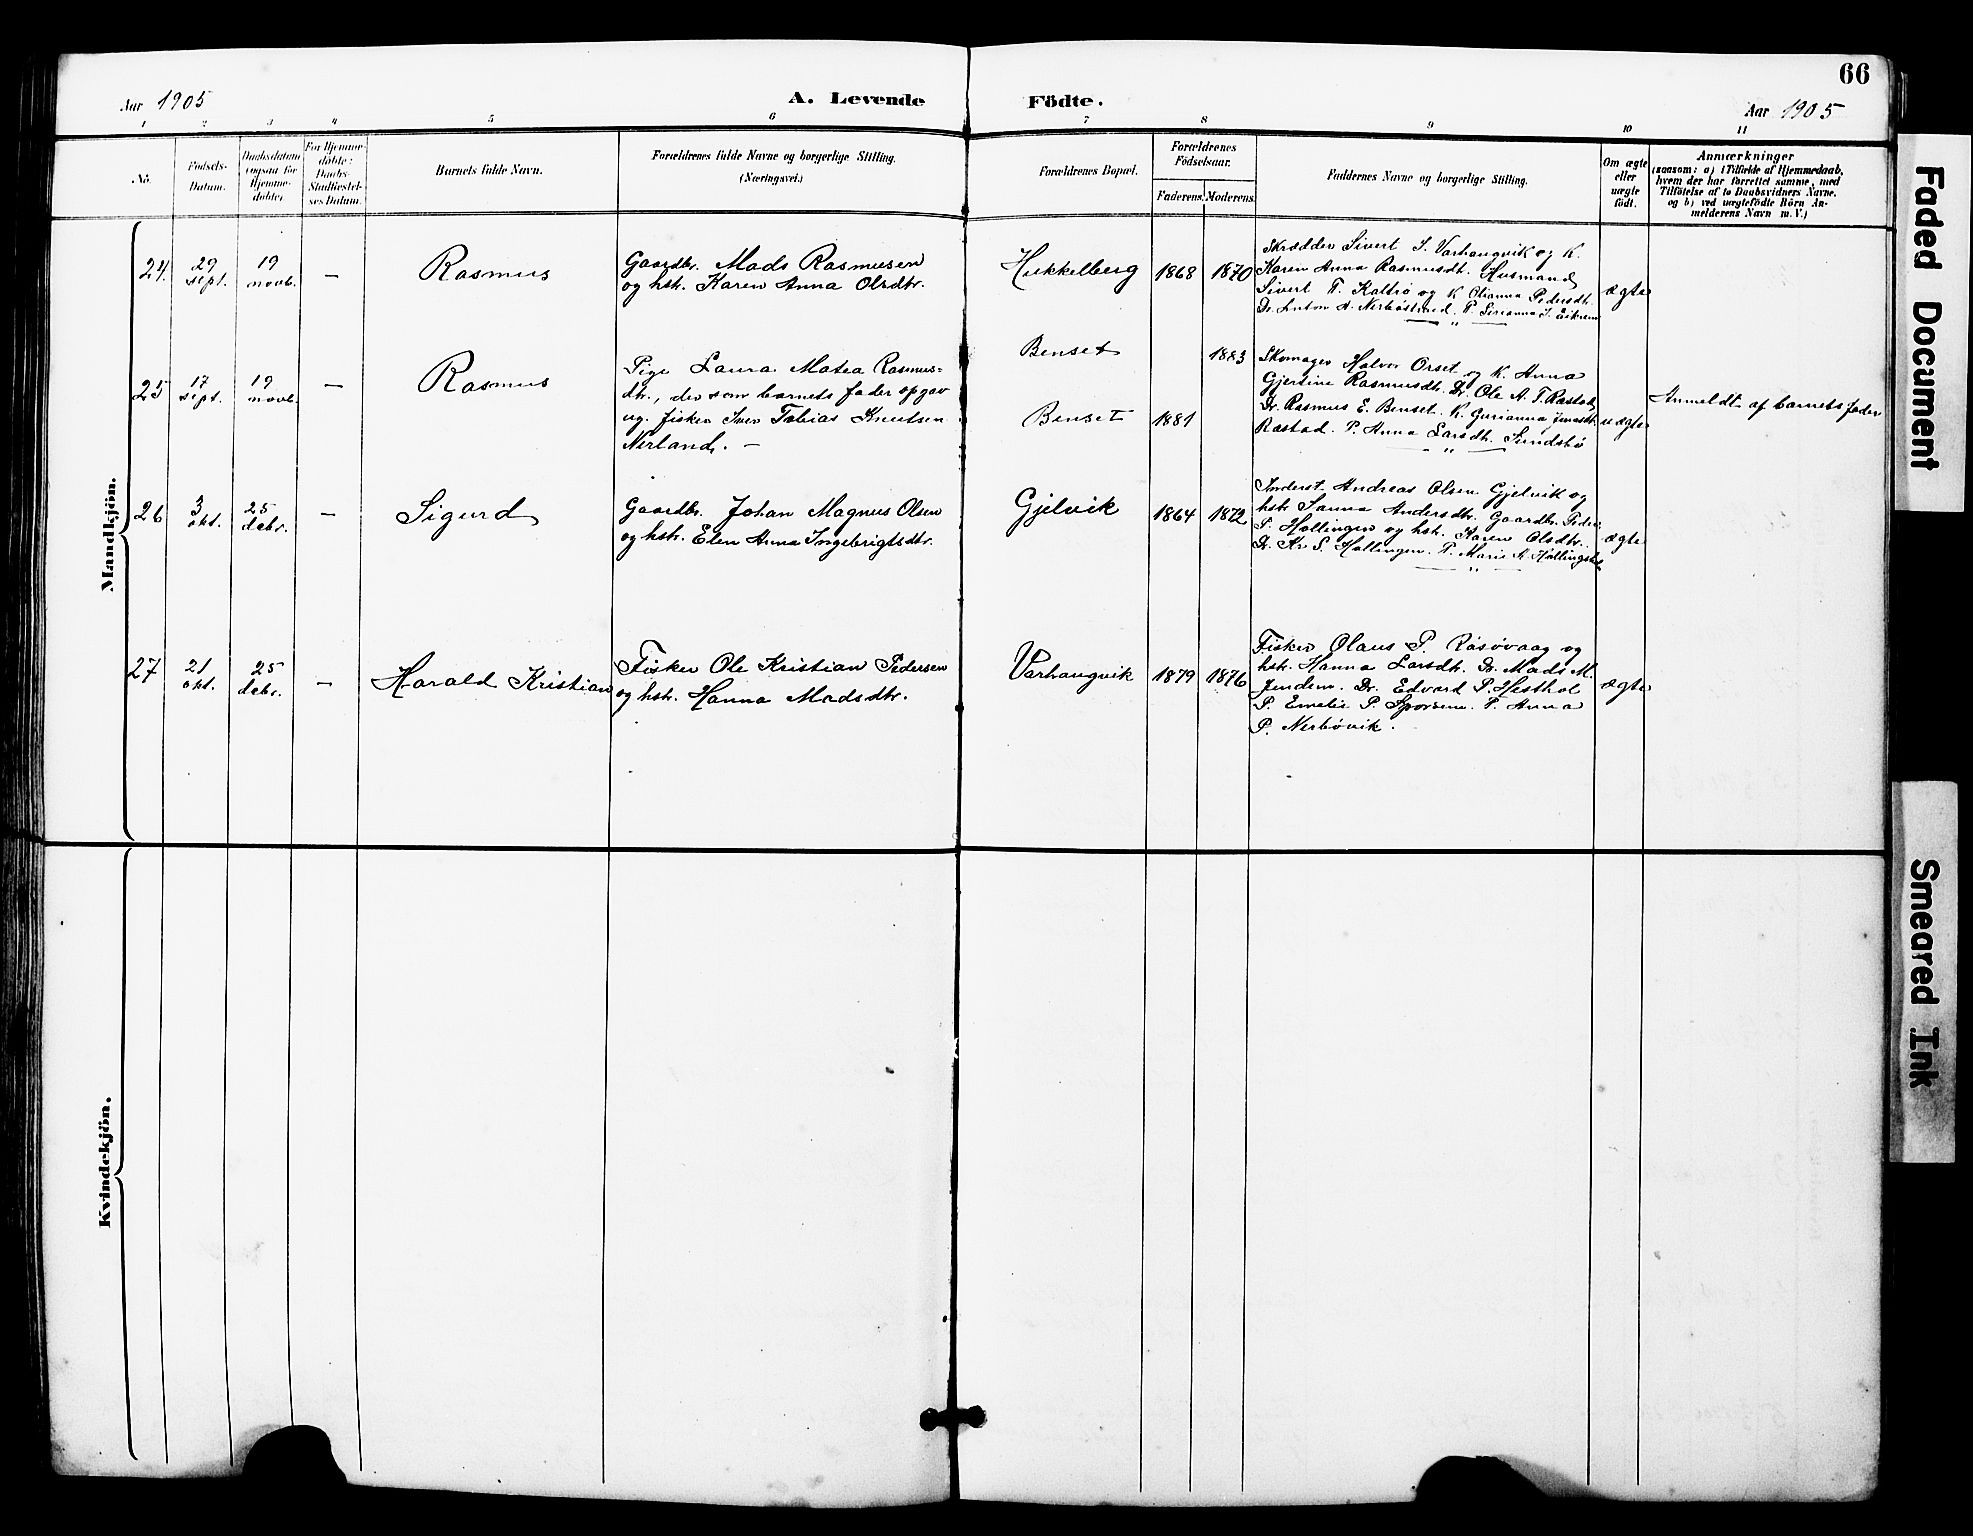 66
Aar 1905
A. Levende
Födte.
Aar 1905
1 2 3 4 5 6 7 8 9 10 11
No.
Födsels-
Datum.
Daabsdatum
(ogsaa for
Hjemme-
döbte)
For Hjemme-
döbte:
Daabs-
Stadfæstel-
ses Datum.
Barnets fulde Navn.
Forældrenes fulde Navne og borgerlige Stilling.
(Næringsvei.)
Forældrenes Bopæl.
Forældrenes
Födselsaar.
Faderens. Moderens.
Faddernes Navne og borgerlige Stilling.
Om ægte
eller
uægte
födt.
Anmærkninger
(saasom: a) i Tilfælde af Hjemmedaab,
hvem der har forrettet samme, med
Tilföielse af to Daabsvidners Navne,
og b) ved uægtefödte Börn An-
melderens Navn m. V.)
Mandkjön.
24.
29
sept.
19
novb.
—
Rasmus
Gaardbr. Mads Rasmusen
og hstr. Karen Anna Olsdtr.
Hukkelberg
1868
1870
Skrædder Sivert S. Varhaugvik og K.
Karen Anna Rasmusdt. Husmand
Sivert T. Kaltrø og K. Olianna Pedersdt.
Dr. Anton A. Nerbøstrned. P. Sirianna J. Eikrem
ægte
25
17
sept.
19
novb.
—
Rasmus
Pige Laura Matea Rasmus-
dtr., der som barnets fader opgav
ug. fisker Iver Tobias Knutsen
Nerland. —
Benset
1883
Benset
1881
Skomager Halvor Orset og K. Anna
Gjertine Rasmusdt. Dr. Ole A. T. Rastad
Dr. Rasmus E. Benset. K. Gurianna
Rastad. P. Anna Larsdt. Sundsbø
uægte
Anmeldt af barnets fader
26
3
okt.
25
debr.
—
Sigurd
Gaardbr. Johan Magnus Olsen
og hstr. Elen Anna Ingebrigtsdtr.
Gjelvik
1864
1872
Inderst. Andreas Olsen Gjelvik og
hstr. Sanna Andersdtr. Gaardbr. Peder
P. Hollingen og hstr. Karen Olsdtr.
Dr. Kr. S. Hollingen. P. Marie A. Hollingsh.
ægte
27
21
okt.
25
debr.
—
Harald Kristian
Fisker Ole Kristian Pedersen
og hstr. Hanna Madsdtr.
Varhaugvik
1879
1876
Fisker Olaus P. Røsøvaag og
hstr. Hanna Larsdt. Dr. Mads M.
Jendem. Dr. Edvard P. Hesthol
P. Emelie P. Sporsem. P. Anna
P. Nerbøvik.
ægte
Kvindekjön.
Faded Document
Smeared Ink